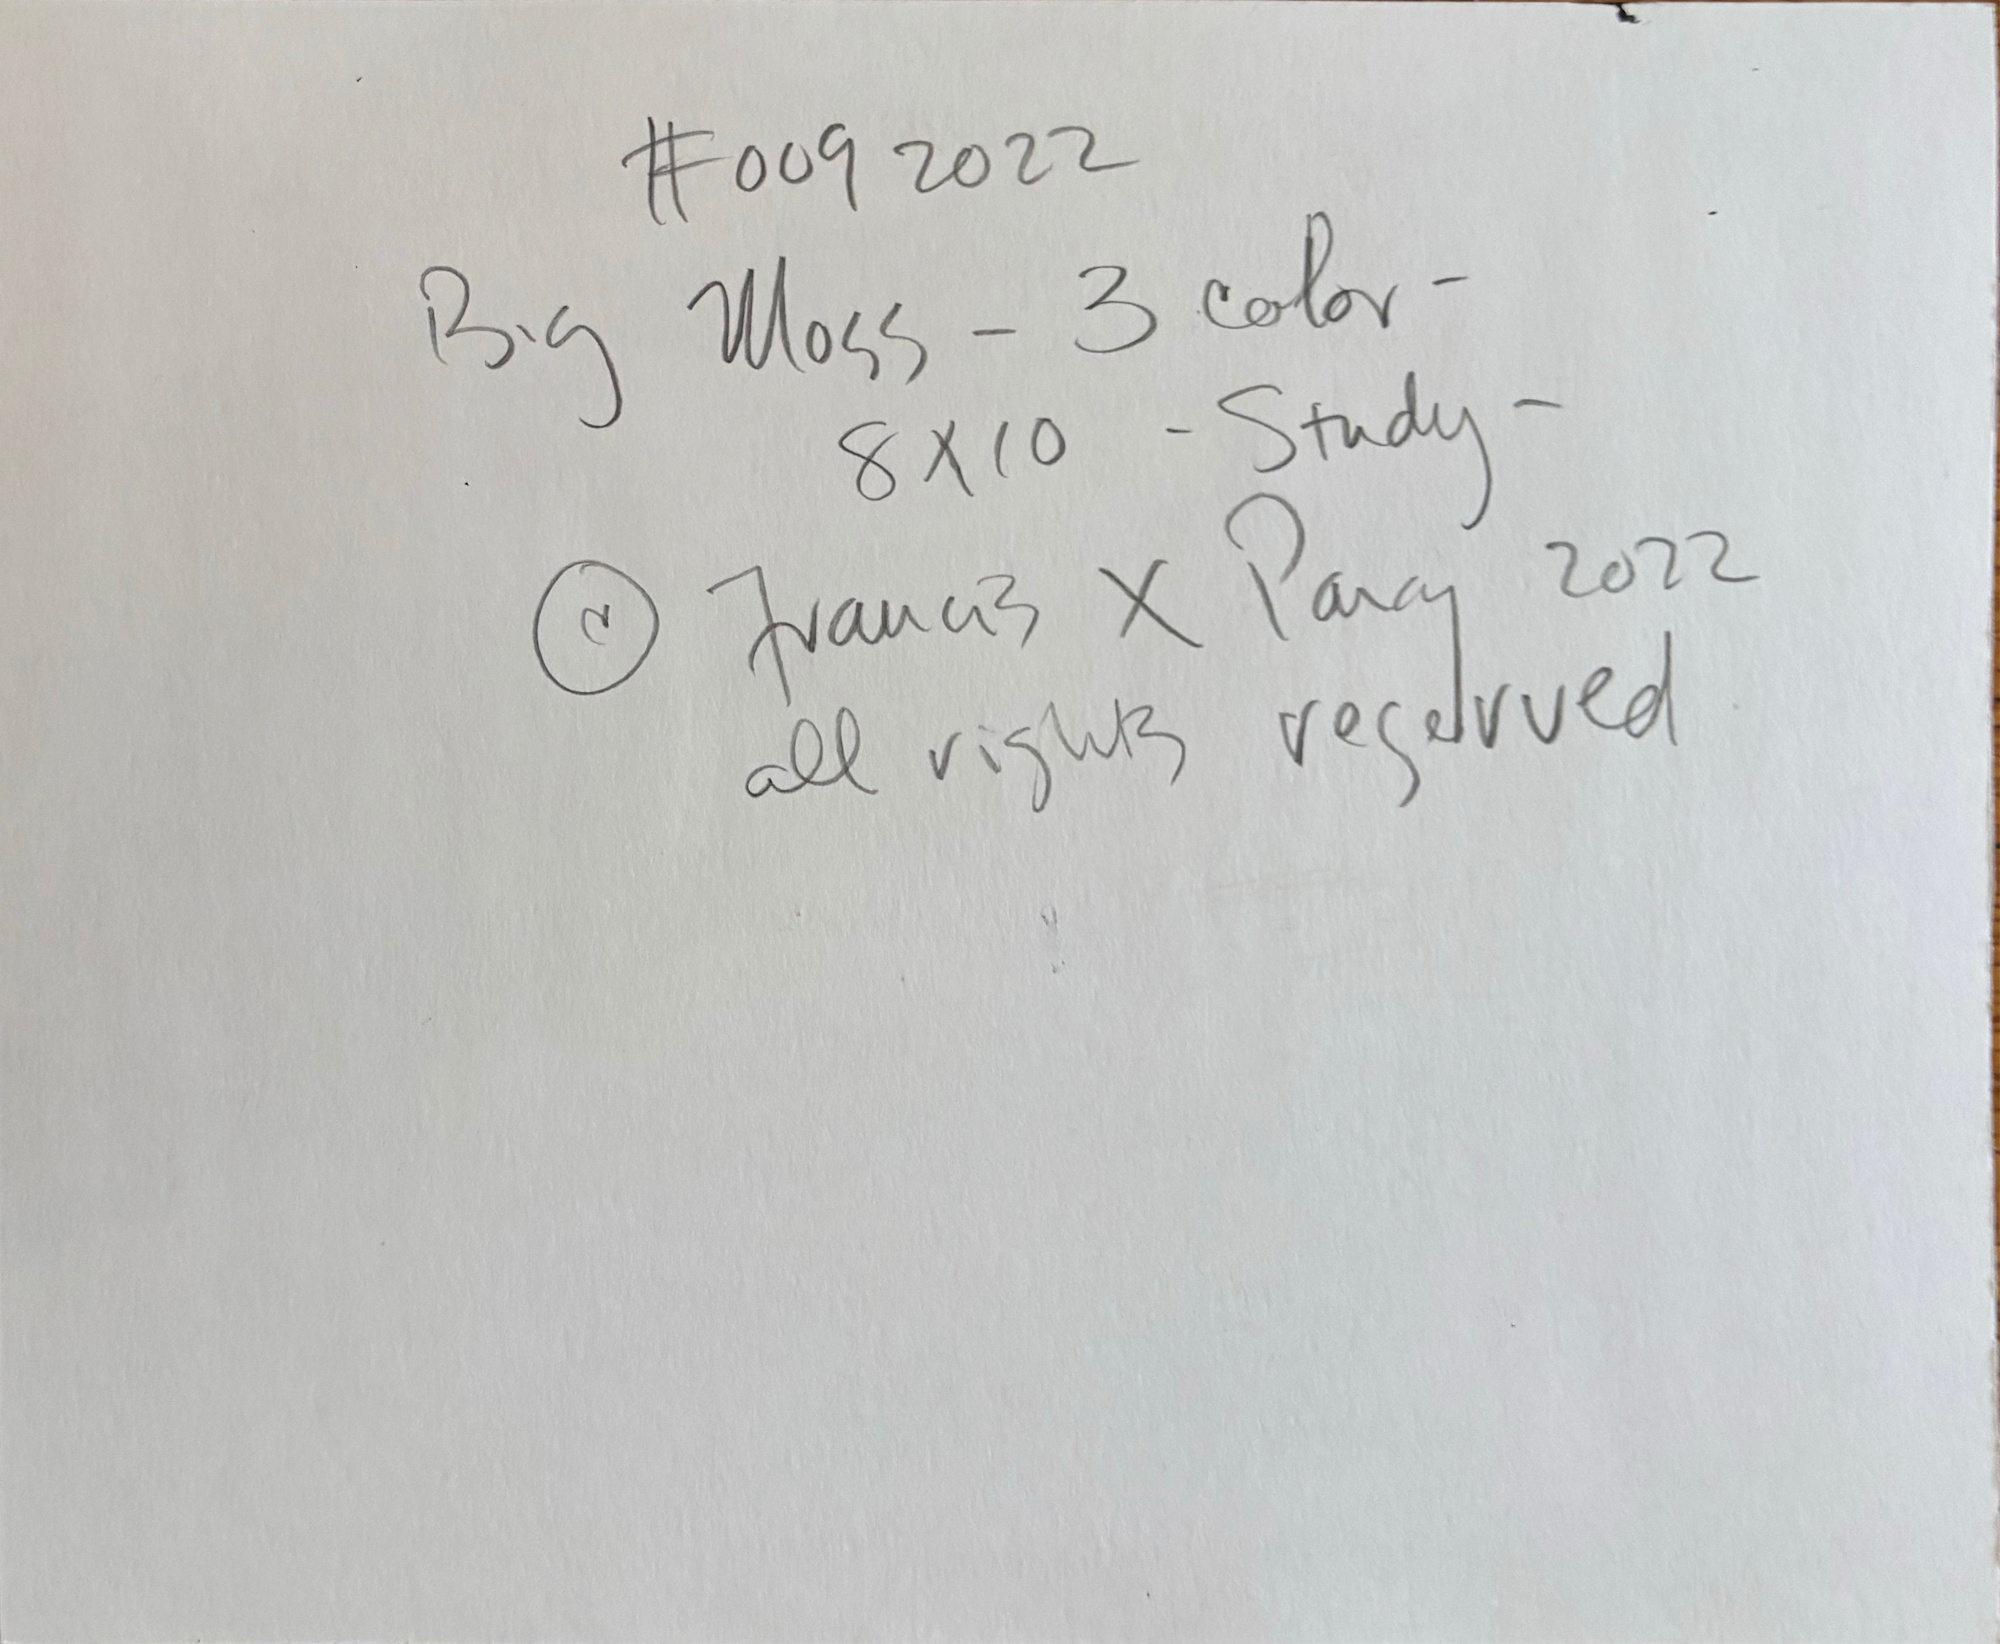 #009 2022
Big Moss - 3 color -
8x10 - Study -
© Francis X Pavy 2022
all rights reserved